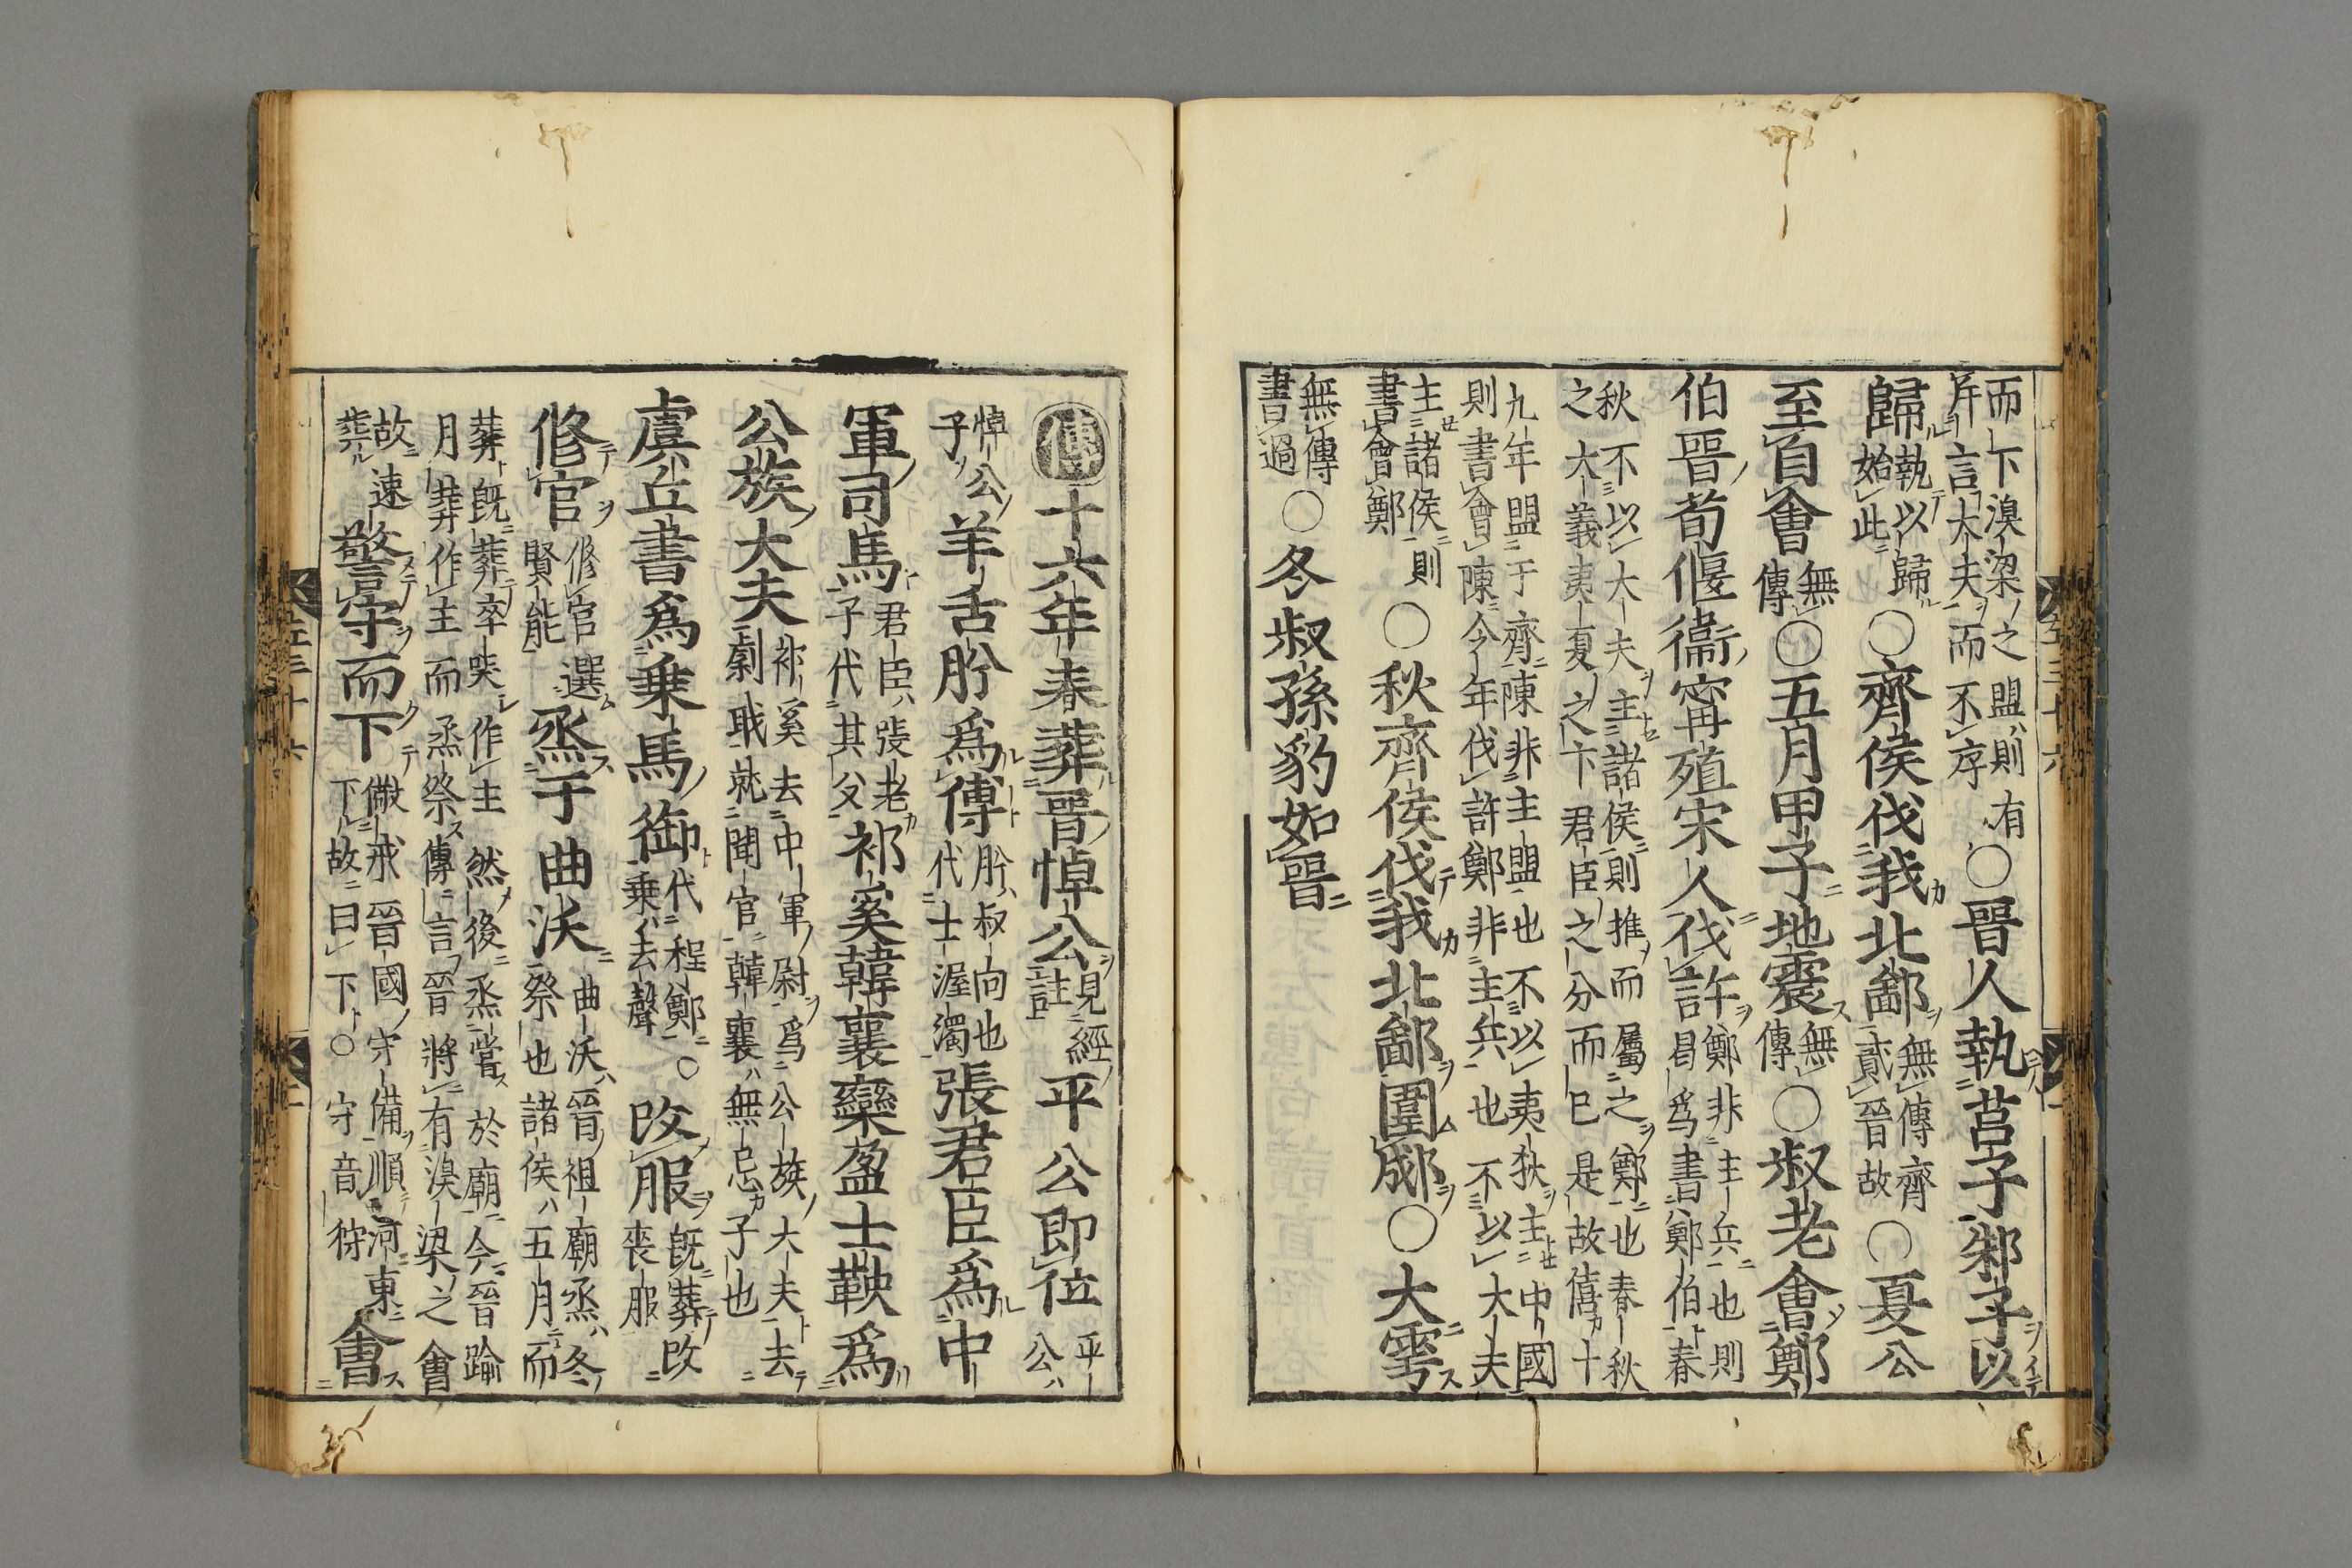 而下溴梁之盟則有
斥言大夫而不序○晉人執莒子邾子以
歸執以歸
始此○齊侯伐我北鄙無傳齊
貳晉故○夏公
至自會無
傳○五月甲子地震無
傳○叔老會鄭
伯晉荀偃衞甯殖宋人伐許鄭非主兵也則
曷爲書鄭伯春
秋不以大夫主諸侯則推而屬之鄭也春秋
之大義夷夏之卞君臣之分而已是故僖十
九年盟于齊陳非主盟也不以夷狄主中國
則書會陳今年伐許鄭非主兵也不以大夫
主諸侯則
書會鄭○秋齊侯伐我北鄙圍郕○大雩
無傳
書過○冬叔孫豹如晉
傳十六年春葬晉悼公見經
註平公即位平
公
悼公
子羊舌肸爲傅肸叔向也
代士渥濁張君臣爲中
軍司馬君臣張老
子代其父祁奚韓襄欒盈士鞅爲
公族大夫祁奚去中軍尉爲公族大夫去
劇職就閒官韓襄無忌子也
虞丘書爲乗馬御代程鄭○
乗去聲改服既葬改
喪服
修官修官選
賢能烝于曲沃曲沃晉祖廟烝冬
祭也諸侯五月而
葬既葬卒哭作主然後烝嘗於廟今晉踰
月葬作主而烝祭傳言晉將有溴梁之會
故速
葬警守而下儆戒晉國守備順河東
下故曰下○守音狩會